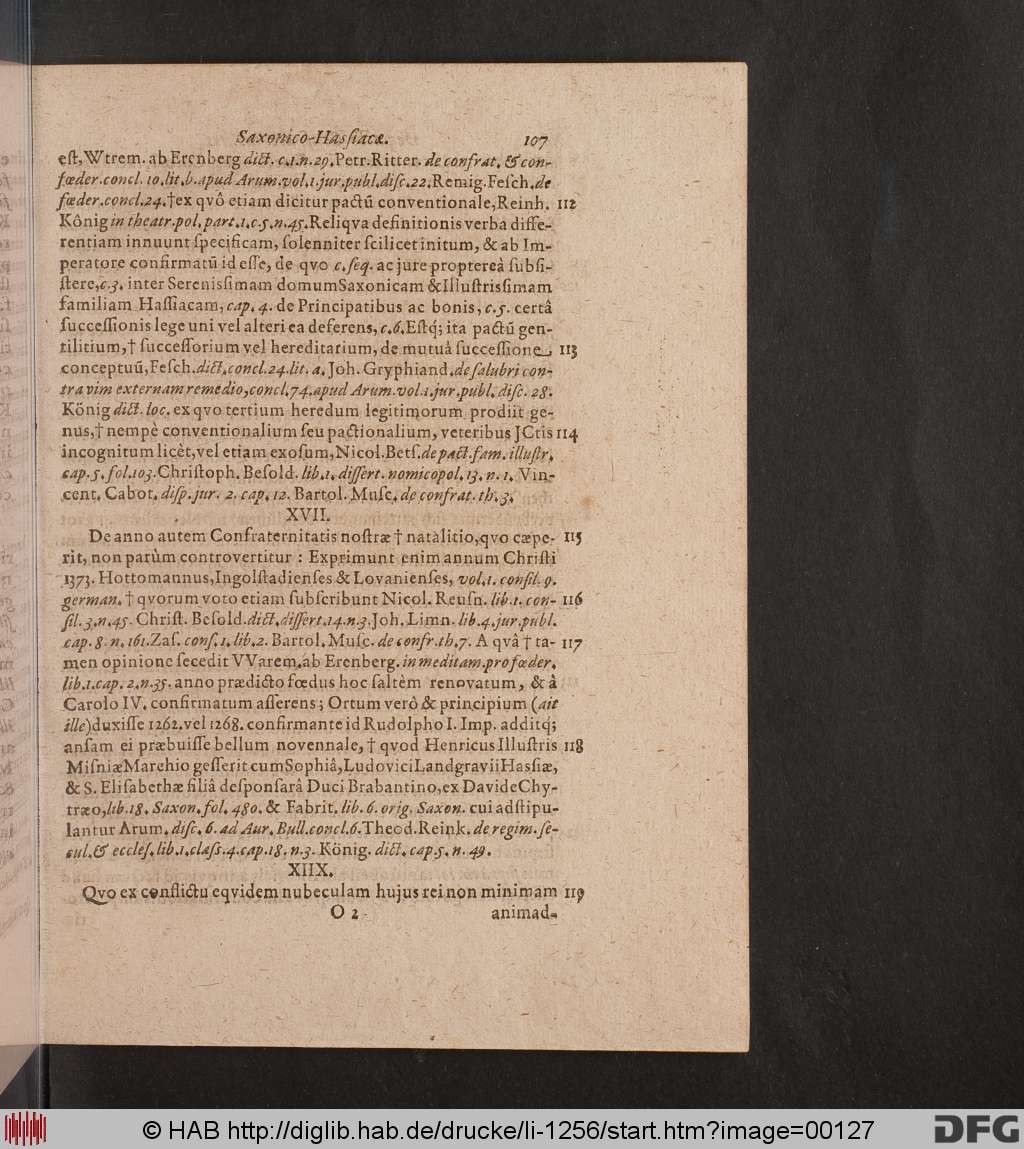 Saxonico-Hasſiacæ. 107
eſt, Wtrem. ab Erenberg dict. c.1.n.29. Petr. Ritter. de confrat. & con-
fœder. concl. 10. lit. b. apud Arum. vol. 1. jur. publ. diſc. 22. Remig. Feſch. de
fœder. concl. 24. † ex qvô etiam dicitur pactũ conventionale, Reinh. 112
Kônig in theatr. pol. part. 1. c. 5. n. 45. Reliqva definitionis verba diffe-
rentiam innuunt ſpecificam, ſolenniter ſcilicet initum, & ab Im-
peratore confirmatũ id eſſe, de qvo c. ſeq. ac jure proptereà ſubſi-
ſtere, c. 3. inter Sereniſsimam domum Saxonicam & Illuſtriſsimam
familiam Haſſiacam, cap. 4. de Principatibus ac bonis, c. 5. certâ
ſucceſſionis lege uni vel alteri ea deferens, c. 6. Eſtq́; ita pactũ gen-
tilitium, † ſucceſſorium vel hereditarium, de mutuâ ſucceſſione 113
conceptuũ, Feſch. dict. concl. 24. lit. a. Joh. Gryphiand. de ſalubri con-
tra vim externam remedio, concl. 74. apud Arum. vol. 1. jur. publ. diſc. 28.
König dict. loc. ex qvo tertium heredum legitimorum prodiit ge-
nus, † nempè conventionalium ſeu pactionalium, veteribus JCtis 114
incognitum licèt, vel etiam exoſum, Nicol. Betſ. de pact. fam. illuſtr.
cap. 5. fol. 103. Chriſtoph. Beſold. lib. 1. diſſert. nomicopol. 13. n. 1. Vin-
cent. Cabot. diſp. jur. 2. cap. 12. Bartol. Muſc. de confrat. th. 3.
XVII.
De anno autem Confraternitatis noſtræ † natàlitio, qvo cæpe- 115
rit, non parùm controvertitur : Exprimunt enim annum Chriſti
1373. Hottomannus, Ingolſtadienſes & Lovanienſes, vol. 1. conſil. 9.
german. † qvorum voto etiam ſubſcribunt Nicol. Reuſn. lib. 1. con- 116
ſil. 3. n. 45. Chriſt. Beſold. dict. diſſert. 14. n. 3. Joh. Limn. lib. 4. jur. publ.
cap. 8. n. 161. Zaſ. conſ. 1. lib. 2. Bartol. Muſc. de confr. th. 7. A qvâ † ta- 117
men opinione ſecedit VVarem. ab Erenberg. in meditam. pro fœder.
lib. 1. cap. 2. n. 35. anno prædicto fœdus hoc ſaltèm renovatum, & à
Carolo IV. confirmatum aſſerens; Ortum verò & principium (ait
ille) duxiſſe 1262. vel 1268. confirmante id Rudolpho I. Imp. additq́;
anſam ei præbuiſſe bellum novennale, † qvod Henricus Illuſtris 118
Miſniæ Marchio geſſerit cum Sophiâ, Ludovici Landgravii Haſsiæ,
& S. Eliſabethæ filiâ deſponſarâ Duci Brabantino, ex Davide Chy-
træo, lib. 18. Saxon. fol. 480. & Fabrit. lib. 6. orig. Saxon. cui adſtipu-
lantur Arum. diſc. 6. ad Aur. Bull. concl. 6. Theod. Reink. de regim. ſe-
cul. & eccleſ. lib. 1. claſs. 4. cap. 18. n. 3. König. dict. cap. 5. n. 49.
XIIX.
Qvo ex conflictu eqvidem nubeculam hujus rei non minimam 119
O 2 animad-
© HAB http://diglib.hab.de/drucke/li-1256/start.htm?image=00127
DFG